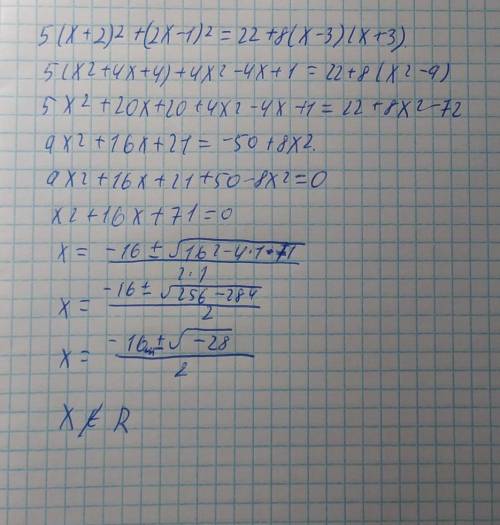 5(x+2)²+(2x-1)²=22+8(x-3)(x+3).
5(x2+4x+4)+4x2-4x+1=22+8(x2-9)
5x2+20x+20+4x2-4x+1=22+8x2-72
9x2+16x+21=-50+8x2.
9x2+16x+21+50-8x2=0
x2+16x+71=0
x= -16±√162-4·1·71 / 2·1
x= -16±√256-284 / 2
x= -16±√-28 / 2
x∉R